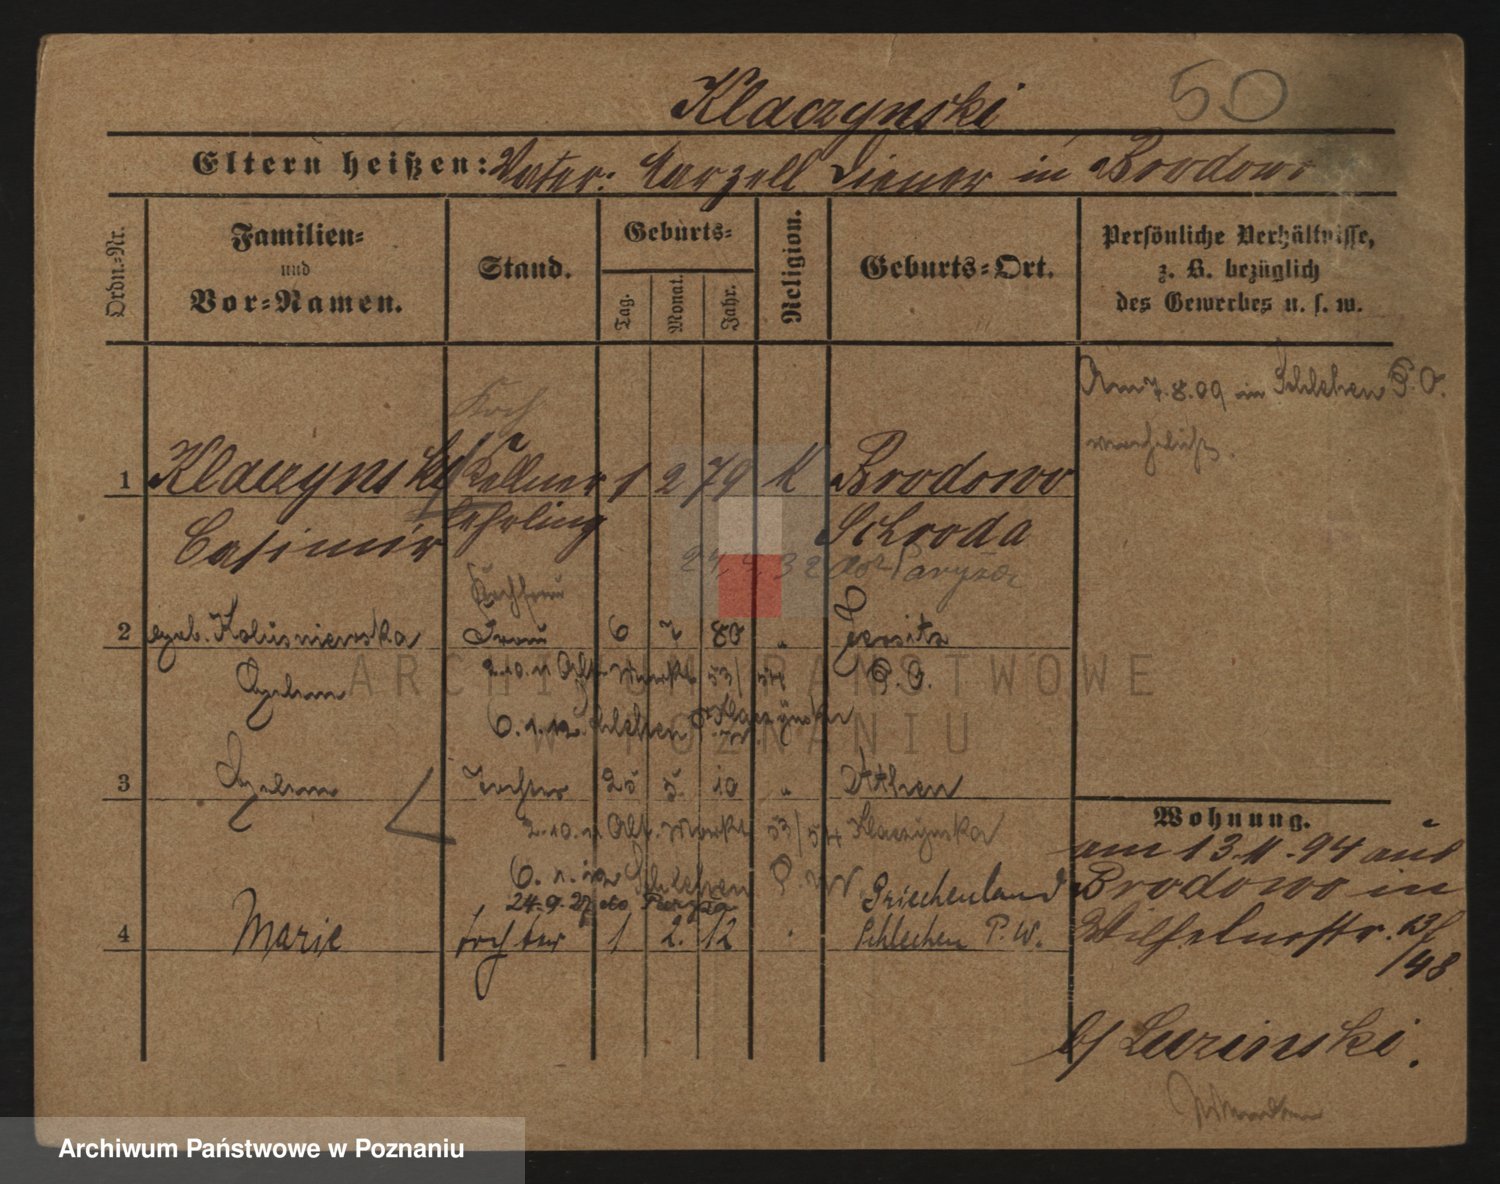 Klaczynski
50
Eltern heißen: Vater: Marzell Diener in Brodowo
Ordn.-Nr.
Familien- und Vor-Namen.
Stand.
Geburts-
Tag.
Monat.
Jahr.
Religion.
Geburts-Ort.
Persönliche Verhältnisse,
z. B. bezüglich
des Gewerbes u. s. w.
Am 7.8.09 in Schlehen P.O.
Koch
1 Klaczynski Kellner 1 2 79 K Brodowo
Casimir lehrling Schroda
24.4.32 do Paryża
2 geb. Kolusniewska Frau 6 7 80 " Jersitz
2.10.11 Alt. Markt 53/54 P.O.
6.1.12. Schlehen Klaczynska
3 Tochter 25 5. 10 " Athen
2.10.11 Alt. Markt 53/54 Klaczynska
6.1.12 Schlehen P.W. Griechenland
24.9.27 do Paryża
4 Marie tochter 1 2. 12 " Schlechen P.W.
Wohnung.
am 13.11.94 aus
Brodowo in
Wilhelmstr. 13/
/48
b/ Luzinski.
ARCHIWUM PAŃSTWOWE
W POZNANIU
Archiwum Państwowe w Poznaniu